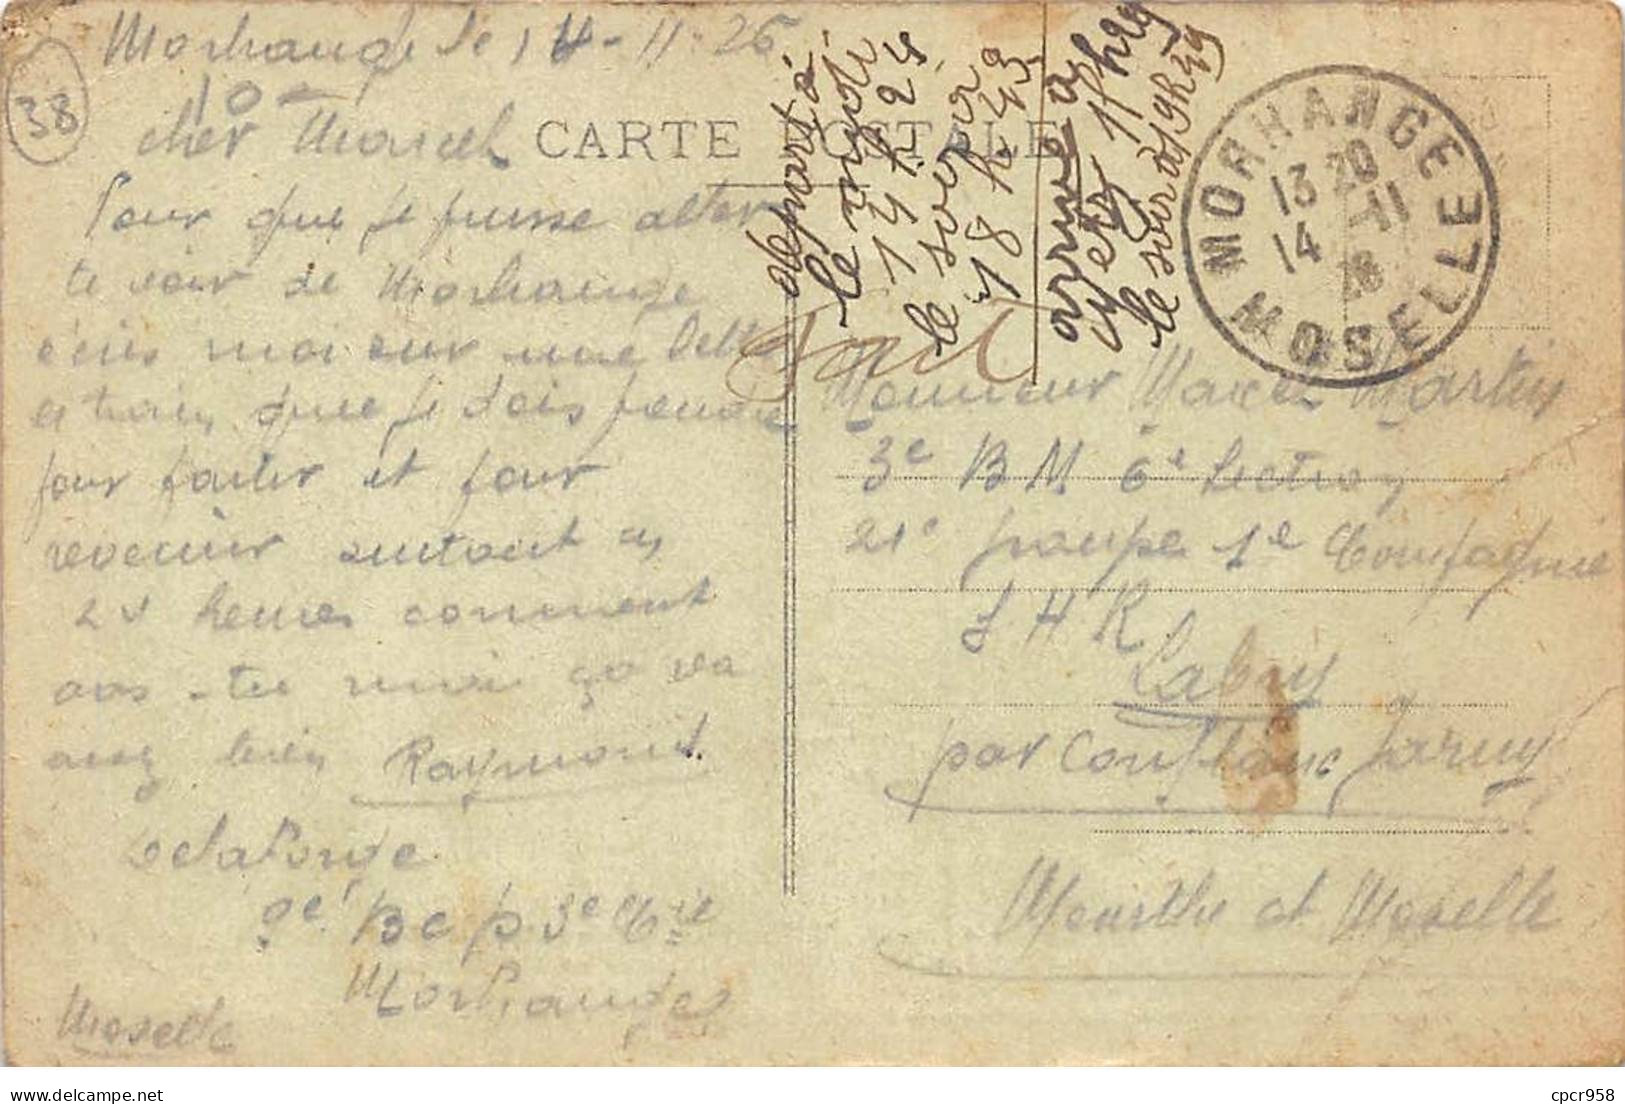 Morhange le 14-11-26
38
10
cher Marcel
CARTE POSTALE
Pour que je puisse aller
te voir de Morhange
écris moi sur une lettre
et train que je dois prendre
pour partir et pour
revenir surtout
24 heures comment
vas-tu moi ça va
assez bien Raymond.
Delaforge
9e BCP 3e Cie
Morhange
Moselle
départ à
le midi
14 h 24
le soir à
18 h 43
arrivé à
Metz 1h29
le soir à 19h49
MORHANGE
13 20
14 -11
26
MOSELLE
Monsieur Marcel Martin
3e B M 6e Section
21e groupe 1e Compagnie
S H R
Labry
par Conflans Jarny
Meurthe et Moselle
cpcr958